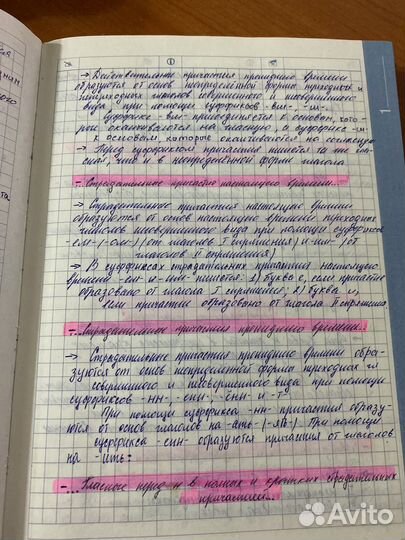 → Действительные причастия прошедшего времени
образуются от основ неопределённой формы переходных и
непереходных глаголов совершенного и несовершенного
вида при помощи суффиксов -вш-, -ш-.
Суффикс -вш- присоединяется к основам, кото-
рые оканчиваются на гласную, а суффикс -ш-
к основам, которые оканчиваются на согласную
→ Перед суффиксом причастия пишется та же
гласная, что и в неопределённой форме глагола
-...Страдательные причастия настоящего времени...
→ Страдательные причастия настоящего времени
образуются от основ настоящего времени переходных
глаголов несовершенного вида при помощи суффиксов
-ем- (-ом-) (от глаголов I спряжения) и -им- (от
глаголов II спряжения)
→ В суффиксах страдательных причастий настоящего
времени -ем- и -им- пишется: 1) буква е, если причастие
образовано от глагола I спряжения; 2) буква и,
если причастие образовано от глагола II спряжения.
-...Страдательные причастия прошедшего времени...
→ Страдательные причастия прошедшего времени обра-
зуются от основ неопределенной формы переходных гл
совершенного и несовершенного вида при помощи
суффиксов -нн-, -енн-, -ённ- и -т-
При помощи суффикса -нн- причастия образу-
ются от основ глаголов на -ать- (-ять-). При помощи
суффикса -енн- образуются причастия от глаголов
на -ить:
-...Гласные перед н в полных и кратких страдательных
причастиях...
1
Avito